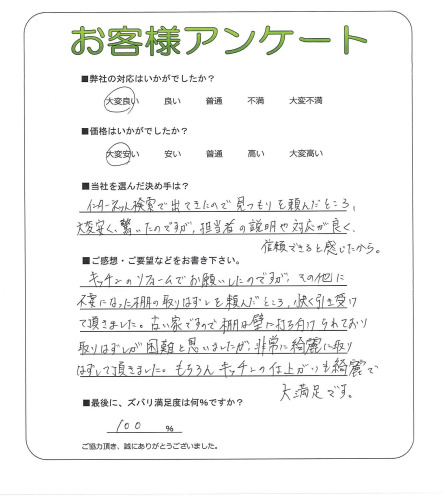 お客様アンケート
■弊社の対応はいかがでしたか？
大変良い 良い 普通 不満 大変不満
■価格はいかがでしたか？
大変安い 安い 普通 高い 大変高い
■当社を選んだ決め手は？
インターネット検索で出てきたので見つもりを頼んだところ、
大変安く、驚いたのですが、担当者の説明や対応が良く、
信頼できると感じたから。
■ご感想・ご要望などをお書き下さい。
キッチンのリフォームでお願いしたのですが、その他に
不要になった棚の取りはずしを頼んだところ、快く引き受け
て頂きました。古い家ですので棚は壁に打ち付けられており
取りはずしが困難と思いましたが、非常に綺麗に取り
はずして頂きました。もちろんキッチンの仕上がりも綺麗で
大満足です。
■最後に、ズバリ満足度は何%ですか？
100 %
ご協力頂き、誠にありがとうございました。